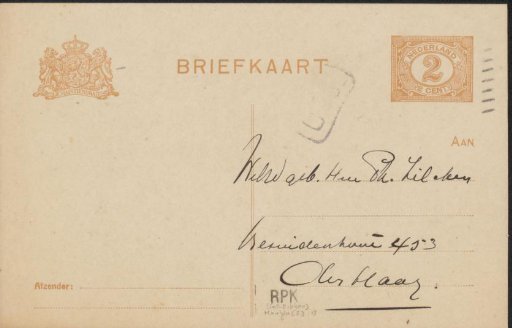 BRIEFKAART
NEDERLAND
2
CENT
AAN
WelEd geb. Heer Ph. Zilcken
Bezuidenhout 453
den Haag.
Afzender:
RPK